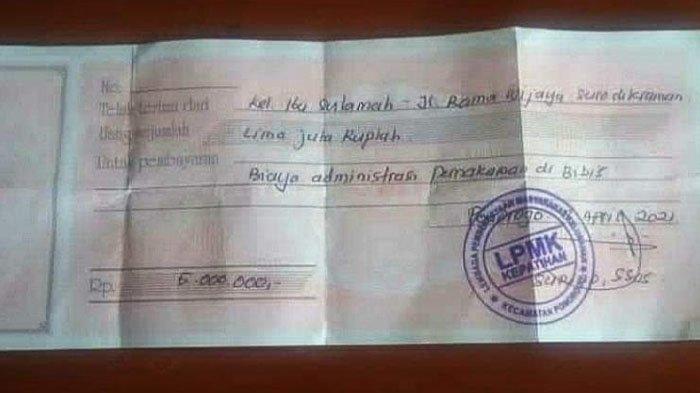 No.
Telah terima dari Kel Ibu Sulamah - Jl. Rama Wijaya Surodikraman
Uang sejumlah Lima juta Rupiah
Untuk pembayaran Biaya administrasi pemakaman di Bibis
Ponorogo, April 2021
LPMK
KEPATIHAN
LEMBAGA PEMBERDAYAAN MASYARAKAT
KECAMATAN PONOROGO
Rp. 5.000.000,-
S.Sos